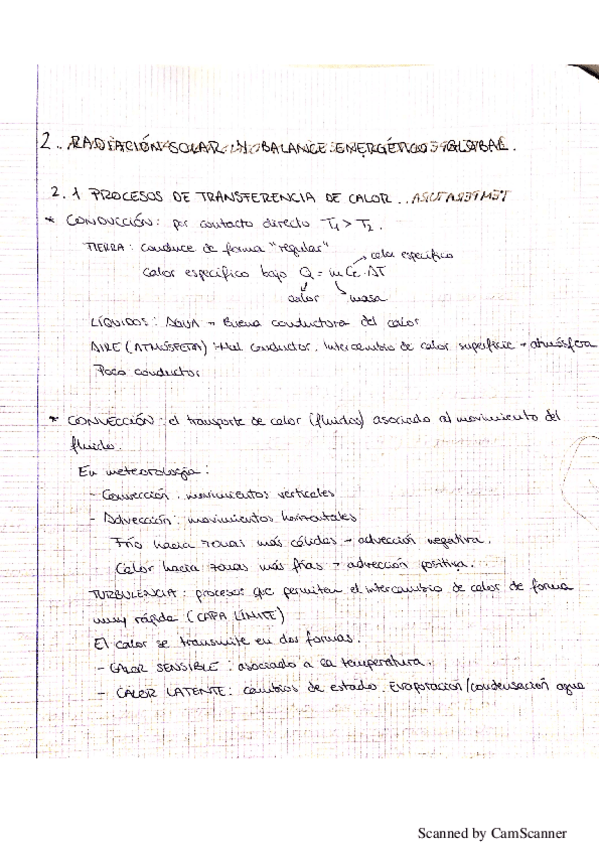 2. RADIACIÓN SOLAR Y BALANCE ENERGÉTICO GLOBAL.
2.1 PROCESOS DE TRANSFERENCIA DE CALOR.
* CONDUCCIÓN: por contacto directo T1 > T2.
TIERRA: conduce de forma "regular"
→ calor específico
calor específico bajo Q = m Ce · ΔT
calor masa
LÍQUIDOS: AGUA → Buena conductora del calor
AIRE (ATMÓSFERA): Mal conductor. Intercambio de calor superficie → atmósfera
Poco conductor
* CONVECCIÓN: el transporte de calor (fluidos) asociado al movimiento del
fluido.
En meteorología:
- Convección: movimientos verticales
- Advección: movimientos horizontales
Frío hacia zonas más cálidas → advección negativa.
Calor hacia zonas más frías → advección positiva.
TURBULENCIA: procesos que permiten el intercambio de calor de forma
muy rápida (CAPA LÍMITE)
El calor se transmite en dos formas.
- CALOR SENSIBLE: asociado a la temperatura.
- CALOR LATENTE: cambios de estado. Evaporación/condensación agua
Scanned by CamScanner